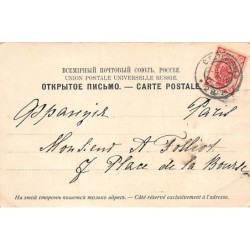 ВСЕМІРНЫЙ ПОЧТОВЫЙ СОЮЗЪ. РОССІЯ.
UNION POSTALE UNIVERSELLE RUSSIE.
ОТКРЫТОЕ ПИСЬМО. — CARTE POSTALE
Франція Paris
Monsieur A Folliot
7 Place de la Bourse
На этой сторонѣ пишется только адресъ. — Côté réservé exclusivement à l'adresse.